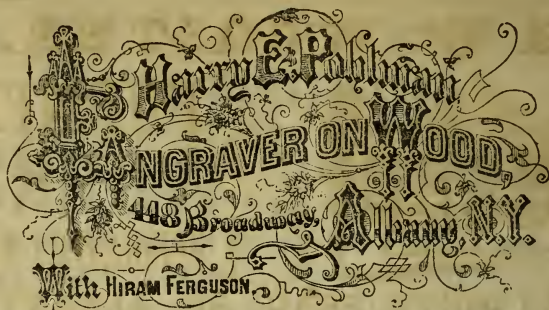 Harry E. Pohlman
ENGRAVER ON WOOD,
448 Broadway, Albany, N.Y.
With HIRAM FERGUSON.